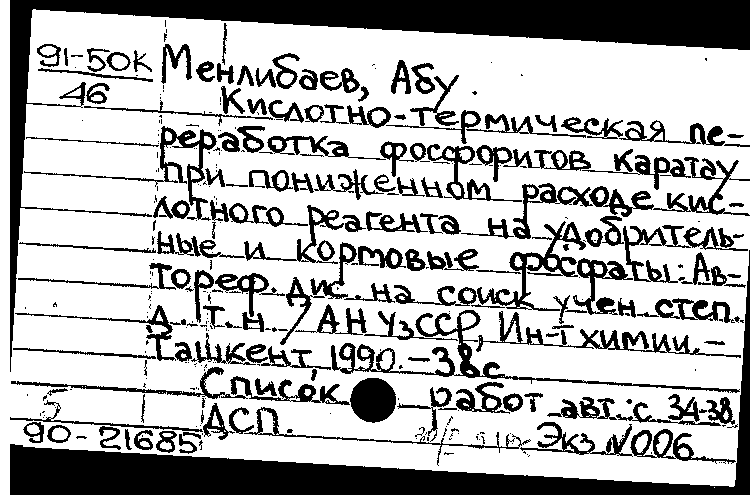 91-50К Менлибаев, Абу.
46 Кислотно-термическая пе-
реработка фосфоритов Каратау
при пониженном расходе кис-
лотного реагента на удобритель-
ные и кормовые фосфаты: Ав-
тореф. дис. на соиск учен. степ.
д. т. н. / АН УзССР, Ин-т химии. –
Ташкент, 1990. – 38с
Список работ авт.: с. 34-38.
5 ДСП.
90-21685 Экз №006